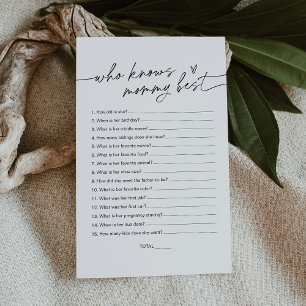 who knows
mommy best
1. How old is she?
2. When is her birthday?
3. What is her middle name?
4. How many siblings does she have?
5. What is her favorite movie?
6. What is her favorite food?
7. What is her favorite animal?
8. What is her shoe size?
9. How did she meet the father to be?
10. What is her favorite color?
11. What was her first job?
12. What was her first car?
13. What is her pregnancy craving?
14. When is her due date?
15. How many kids does she want?
TOTAL